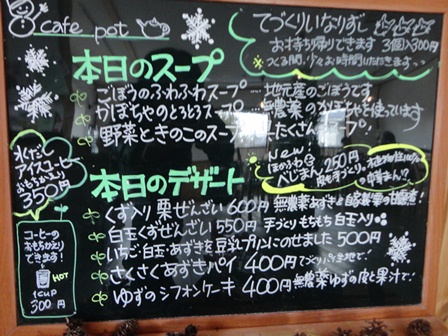 cafe pot
てづくりいなりずし
お持ち帰りできます 3個入300円
つくる間、少々お時間いただきます
本日のスープ
ごぼうのふわふわスープ 地元産のごぼうです
かぼちゃのとろとろスープ 無農薬のかぼちゃを使っています
野菜ときのこのスープ 具だくさんスープ!
水だし
アイスコーヒー
おもちかえり
350円
New
ほかふわ
べじまん 250円
本日のデザート
くず入り 栗ぜんざい 600円 無農薬あずきと自家製の甘露煮!
白玉くずぜんざい 550円 手づくりもちもち白玉入り
いちご・白玉・あずきを豆乳プリンにのせました 500円
さくさくあずきパイ 400円 てづくりパイ生地で
ゆずのシフォンケーキ 400円 無農薬ゆずの皮と果汁で!
コーヒーの
おもちかえり
できます!
HOT
1cup
300円